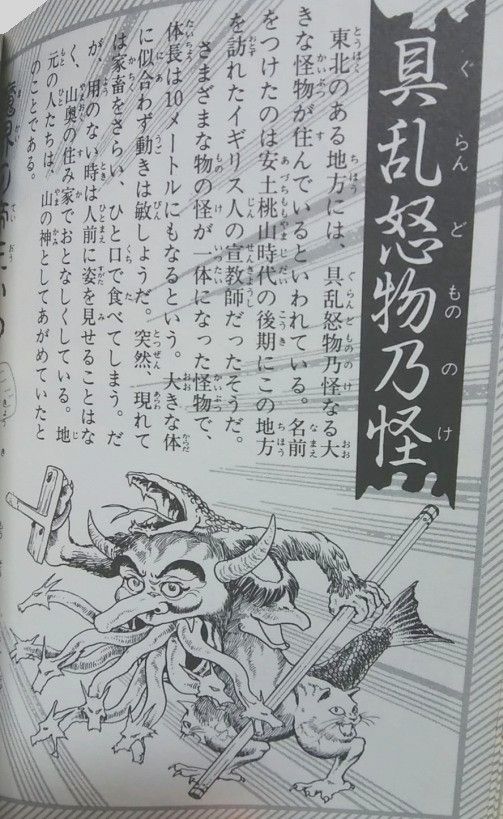 具乱怒物乃怪
ぐらんどもののけ
東北のある地方には、具乱怒物乃怪なる大
きな怪物が住んでいるといわれている。名前
をつけたのは安土桃山時代の後期にこの地方
を訪れたイギリス人の宣教師だったそうだ。
さまざまな物の怪が一体になった怪物で、
体長は10メートルにもなるという。大きな体
に似合わず動きは敏しょうだ。突然、現れて
は家畜をさらい、ひと口で食べてしまう。だ
が、用のない時は人前に姿を見せることはな
く、山奥の住み家でおとなしくしている。地
元の人たちは、山の神としてあがめていたと
のことである。